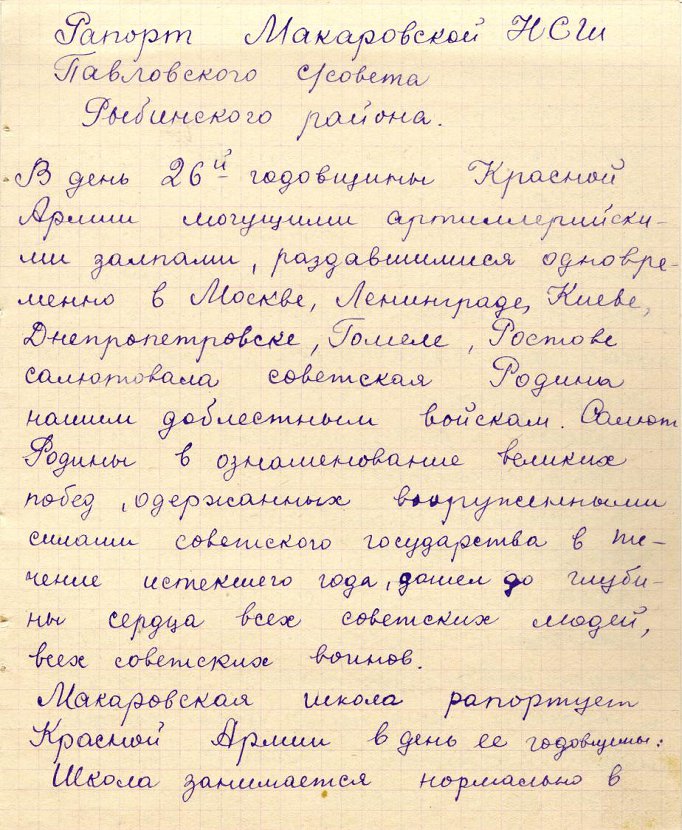 Рапорт Макаровской НСШ
Павловского с/совета
Рыбинского района.
В день 26й годовщины Красной
Армии могущими артиллерийски-
ми залпами, раздавшимися одновре-
менно в Москве, Ленинграде, Киеве,
Днепропетровске, Гомеле, Ростове
салютовала советская Родина
нашим доблестным войскам. Салют
Родины в ознаменование великих
побед, одержанных вооруженными
силами советского государства в те-
чение истекшего года, дошел до глуби-
ны сердца всех советских людей,
всех советских воинов.
Макаровская школа рапортует
Красной Армии в день ее годовщины:
Школа занимается нормально в